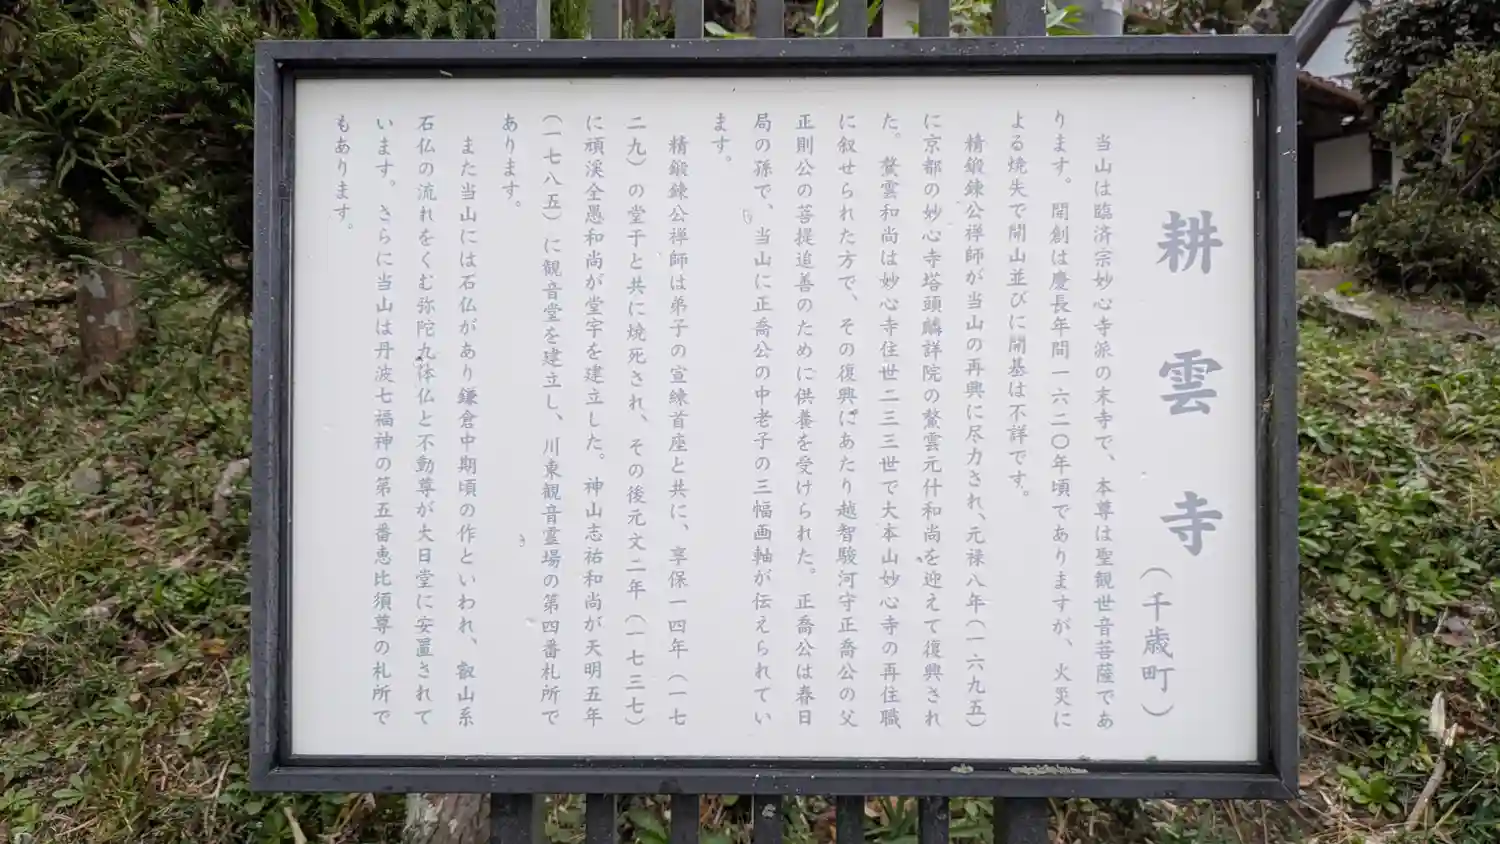 耕雲寺(千歳町)
当山は臨済宗妙心寺派の末寺で、本尊は聖観世音菩薩であ
ります。開創は慶長年間一六二〇年頃でありますが、火災に
よる焼失で開山並びに開基は不詳です。
精鍛錬公禅師が当山の再興に尽力され、元禄八年(一六九五)
に京都の妙心寺塔頭麟詳院の鰲雲元什和尚を迎えて復興され
た。鰲雲和尚は妙心寺住世二三三世で大本山妙心寺の再住職
に叙せられた方で、その復興にあたり越智駿河守正喬公の父
正則公の菩提追善のために供養を受けられた。正喬公は春日
局の孫で、当山に正喬公の中老子の三幅画軸が伝えられてい
ます。
精鍛錬公禅師は弟子の宣練首座と共に、享保一四年(一七
二九)の堂干と共に焼死され、その後元文二年(一七三七)
に頑渓全愚和尚が堂宇を建立した。神山志祐和尚が天明五年
(一七八五)に観音堂を建立し、川東観音霊場の第四番札所で
あります。
また当山には石仏があり鎌倉中期頃の作といわれ、叡山系
石仏の流れをくむ弥陀九体仏と不動尊が大日堂に安置されて
います。さらに当山は丹波七福神の第五番恵比須尊の札所で
もあります。